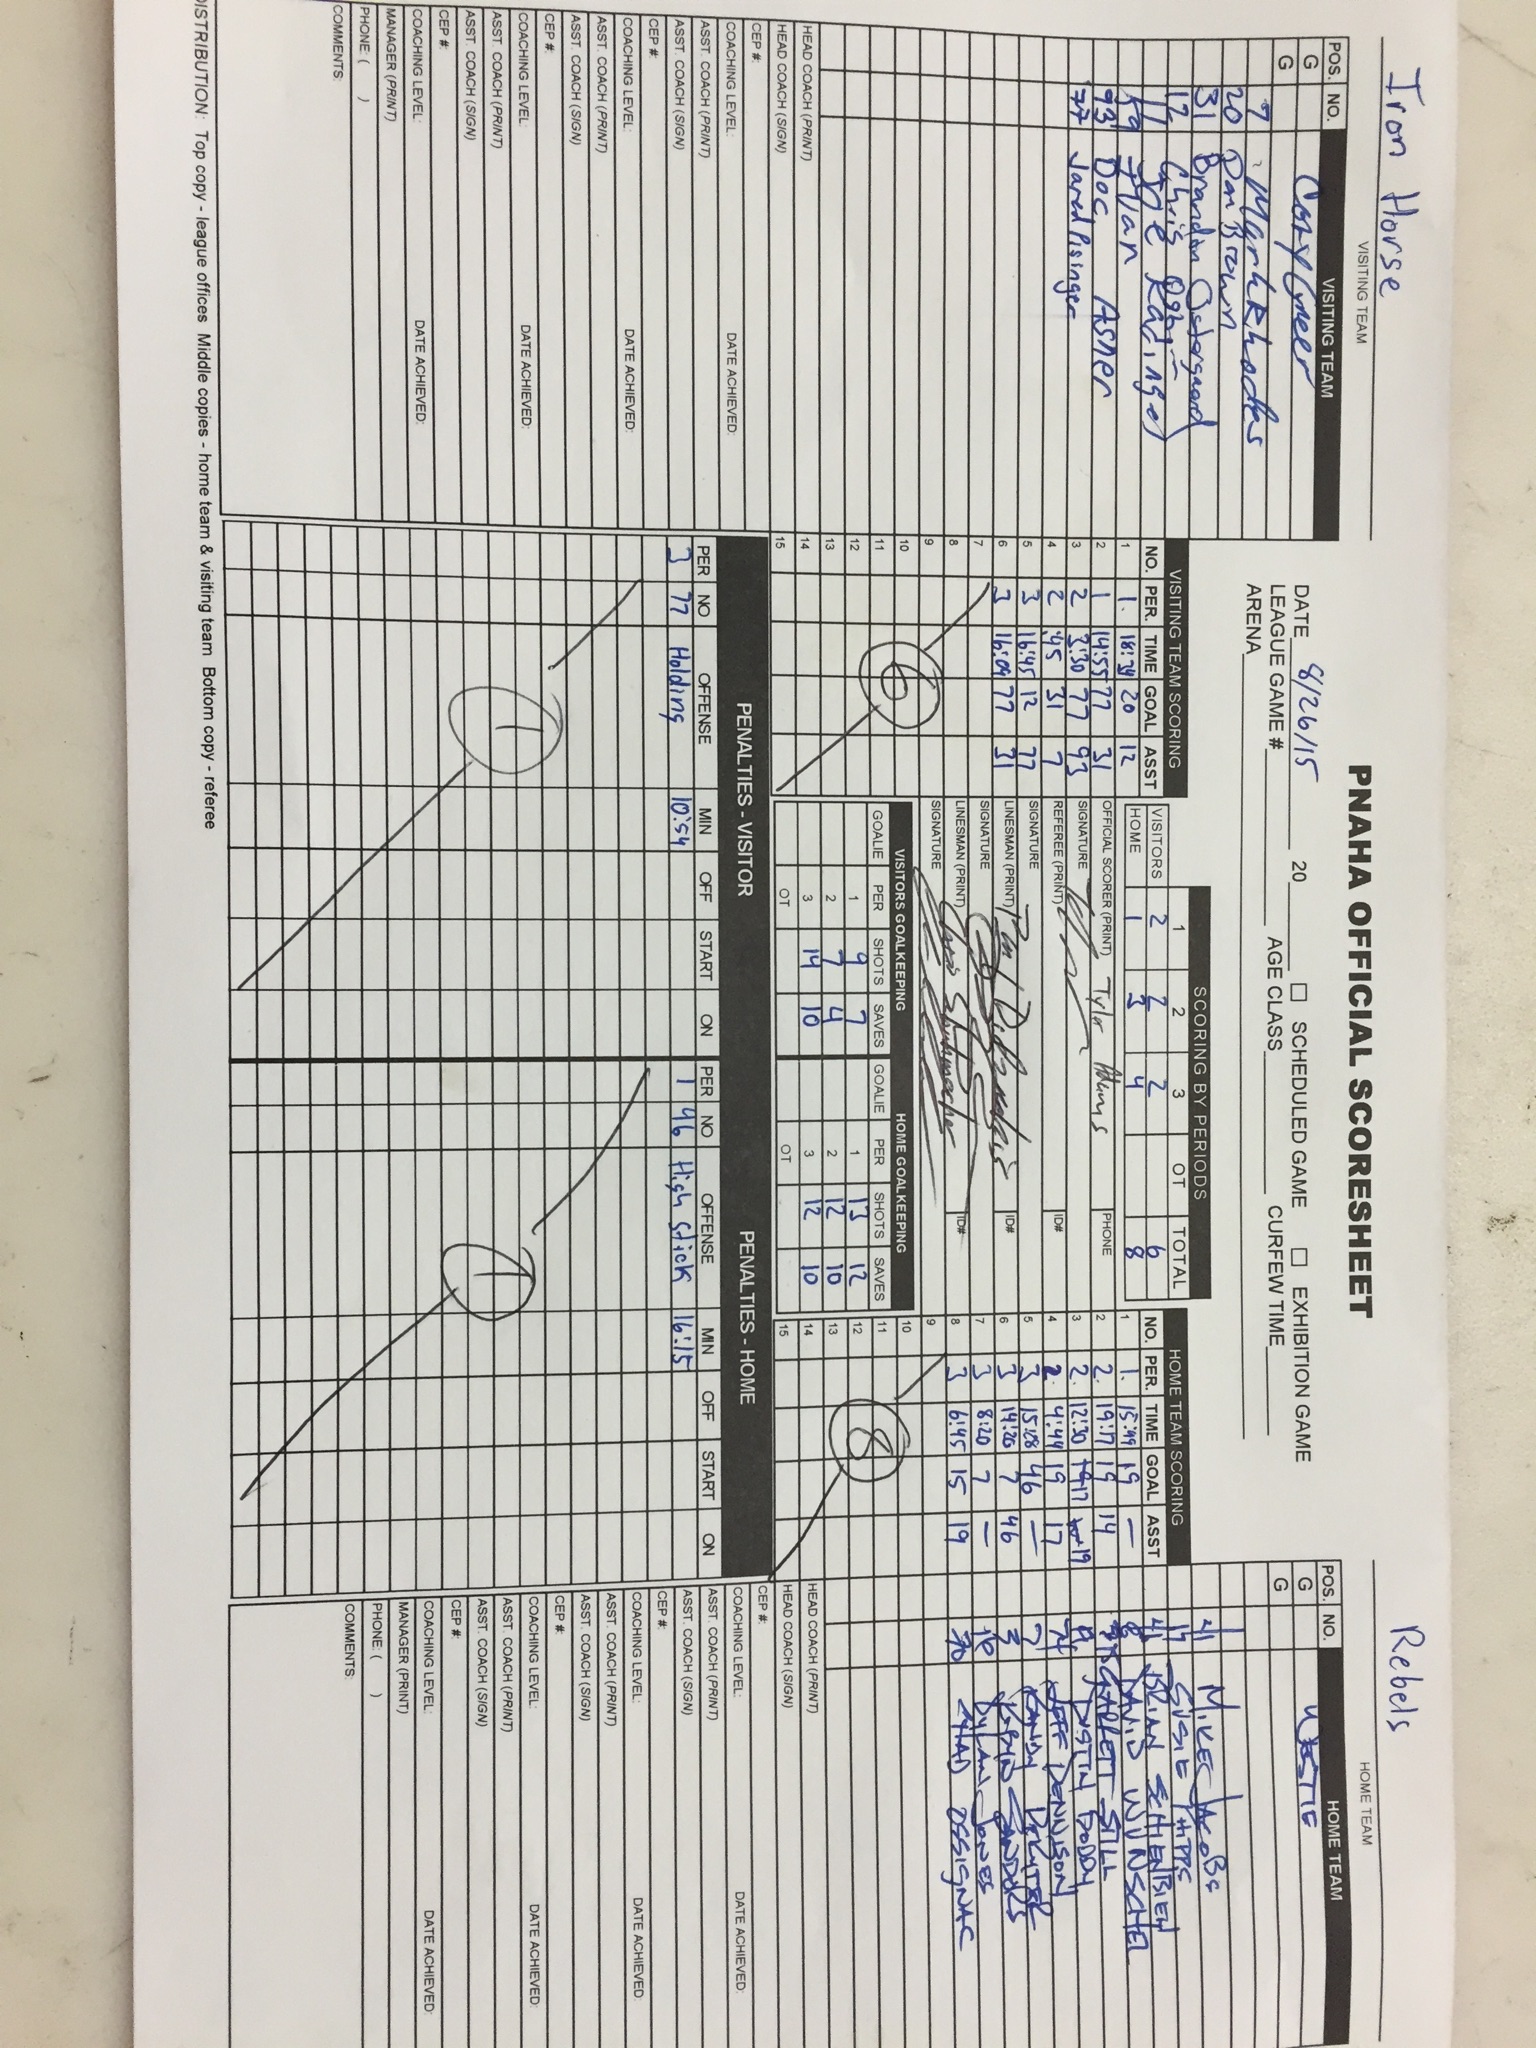 PNAHA OFFICIAL SCORESHEET
Iron Horse
VISITING TEAM
DATE 8/26/15 20 ☐ SCHEDULED GAME ☐ EXHIBITION GAME
LEAGUE GAME # AGE CLASS CURFEW TIME
ARENA
Rebels
HOME TEAM
POS. NO. VISITING TEAM
G
G
7 Mark Rhodes
20 Dan Brown
31 Brandon Ostergaard
12 Chris
Joe Radinger
59
93 Doc Asher
77 Jared Pisinger
HEAD COACH (PRINT)
HEAD COACH (SIGN)
CEP #:
COACHING LEVEL: DATE ACHIEVED:
ASST. COACH (PRINT)
ASST. COACH (SIGN)
CEP #:
COACHING LEVEL: DATE ACHIEVED:
ASST. COACH (PRINT)
ASST. COACH (SIGN)
CEP #:
COACHING LEVEL: DATE ACHIEVED:
ASST. COACH (PRINT)
ASST. COACH (SIGN)
CEP #:
COACHING LEVEL: DATE ACHIEVED:
MANAGER (PRINT)
PHONE: ( )
COMMENTS:
VISITING TEAM SCORING
NO. PER. TIME GOAL ASST
1 1. 18:39 20 12
2 1 14:55 77 31
3 2 3:30 77 93
4 2 :45 31 7
5 3 16:45 12 77
6 3 16:09 77 31
7
8
9
10 6
11
12
13
14
15
SCORING BY PERIODS
1 2 3 OT TOTAL
VISITORS 2 2 2 6
HOME 1 3 4 8
OFFICIAL SCORER (PRINT) Tyler Adams PHONE
SIGNATURE
REFEREE (PRINT) ID#
SIGNATURE
LINESMAN (PRINT) ID#
SIGNATURE
LINESMAN (PRINT) ID#
SIGNATURE
VISITORS GOALKEEPING HOME GOALKEEPING
GOALIE PER SHOTS SAVES GOALIE PER SHOTS SAVES
1 9 7 1 13 12
2 7 4 2 12 10
3 14 10 3 12 10
OT OT
HOME TEAM SCORING
NO. PER. TIME GOAL ASST
1 1. 15:49 19 —
2 2. 19:17 19 14
3 2. 12:30 17 19
4 2. 4:44 19 17
5 3 15:28 46 —
6 3 14:26 7 46
7 3 8:20 7 —
8 3 6:45 15 19
9
10
11 8
12
13
14
15
PENALTIES - VISITOR PENALTIES - HOME
PER NO OFFENSE MIN OFF START ON PER NO OFFENSE MIN OFF START ON
3 77 Holding 10:54 1 46 High stick 16:15
1 1
POS. NO. HOME TEAM
G
G
MIKE JACOBS
SUSIE PHIPPS
BRIAN SCHIENBIEN
DAVID WUNSCHEL
GARRETT STILL
JUSTIN DODDY
JEFF DENNISON
7 RANDY DERUYTER
DYLAN JONES
CHAD OSSIGNAC
HEAD COACH (PRINT)
HEAD COACH (SIGN)
CEP #:
COACHING LEVEL: DATE ACHIEVED:
ASST. COACH (PRINT)
ASST. COACH (SIGN)
CEP #:
COACHING LEVEL: DATE ACHIEVED:
ASST. COACH (PRINT)
ASST. COACH (SIGN)
CEP #:
COACHING LEVEL: DATE ACHIEVED:
ASST. COACH (PRINT)
ASST. COACH (SIGN)
CEP #:
COACHING LEVEL: DATE ACHIEVED:
MANAGER (PRINT)
PHONE: ( )
COMMENTS:
DISTRIBUTION: Top copy - league offices Middle copies - home team & visiting team Bottom copy - referee